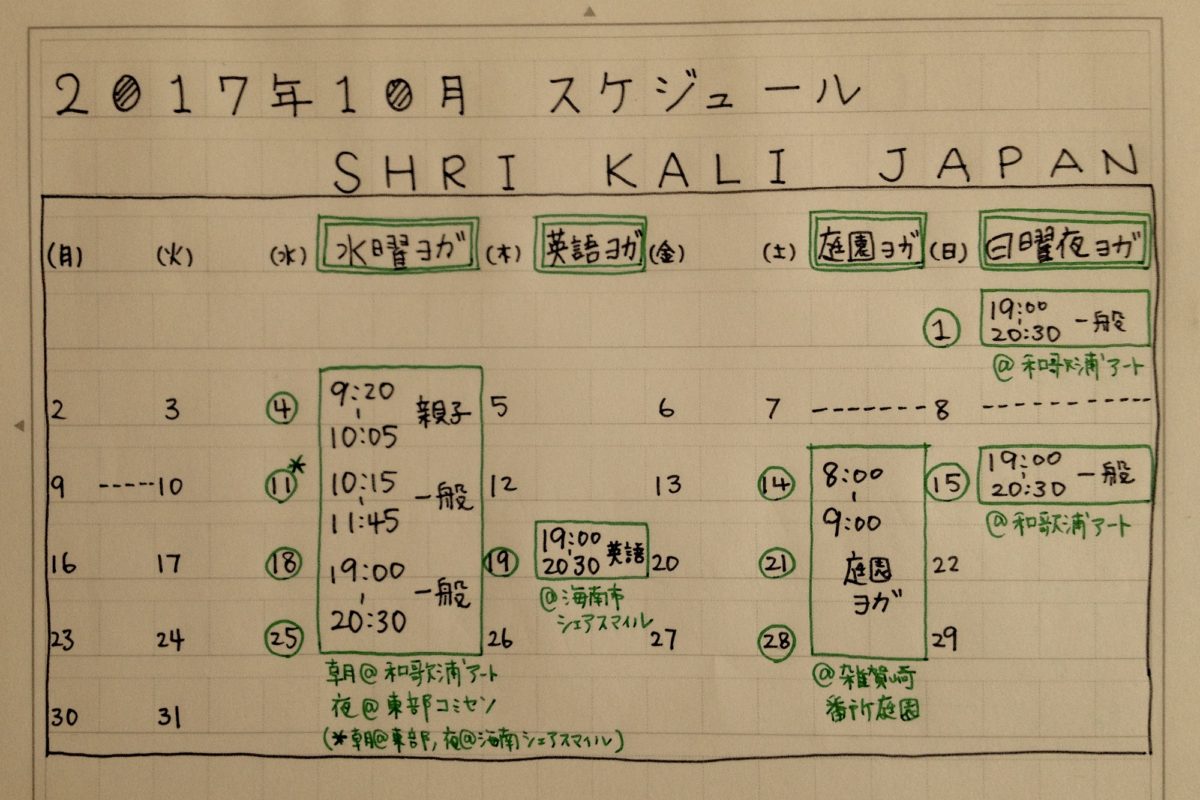 2017年10月 スケジュール
SHRI KALI JAPAN
(月) (火) (水) 水曜ヨガ (木) 英語ヨガ (金) (土) 庭園ヨガ (日) 日曜夜ヨガ
1 19:00-20:30 一般
@和歌浦アート
2 3 4 9:20-10:05 親子 5 6 7 -------- 8 ----------
9 -----10 11* 10:15-11:45 一般 12 13 14 8:00-9:00 15 19:00-20:30 一般
@和歌浦アート
16 17 18 19:00-20:30 一般 19 19:00-20:30 英語 20 21 庭園ヨガ 22
@海南市
シェアスマイル
23 24 25 26 27 28 29
朝@和歌浦アート
夜@東部コミセン
(*朝@東部,夜@海南シェアスマイル)
@雑賀崎
番所庭園
30 31